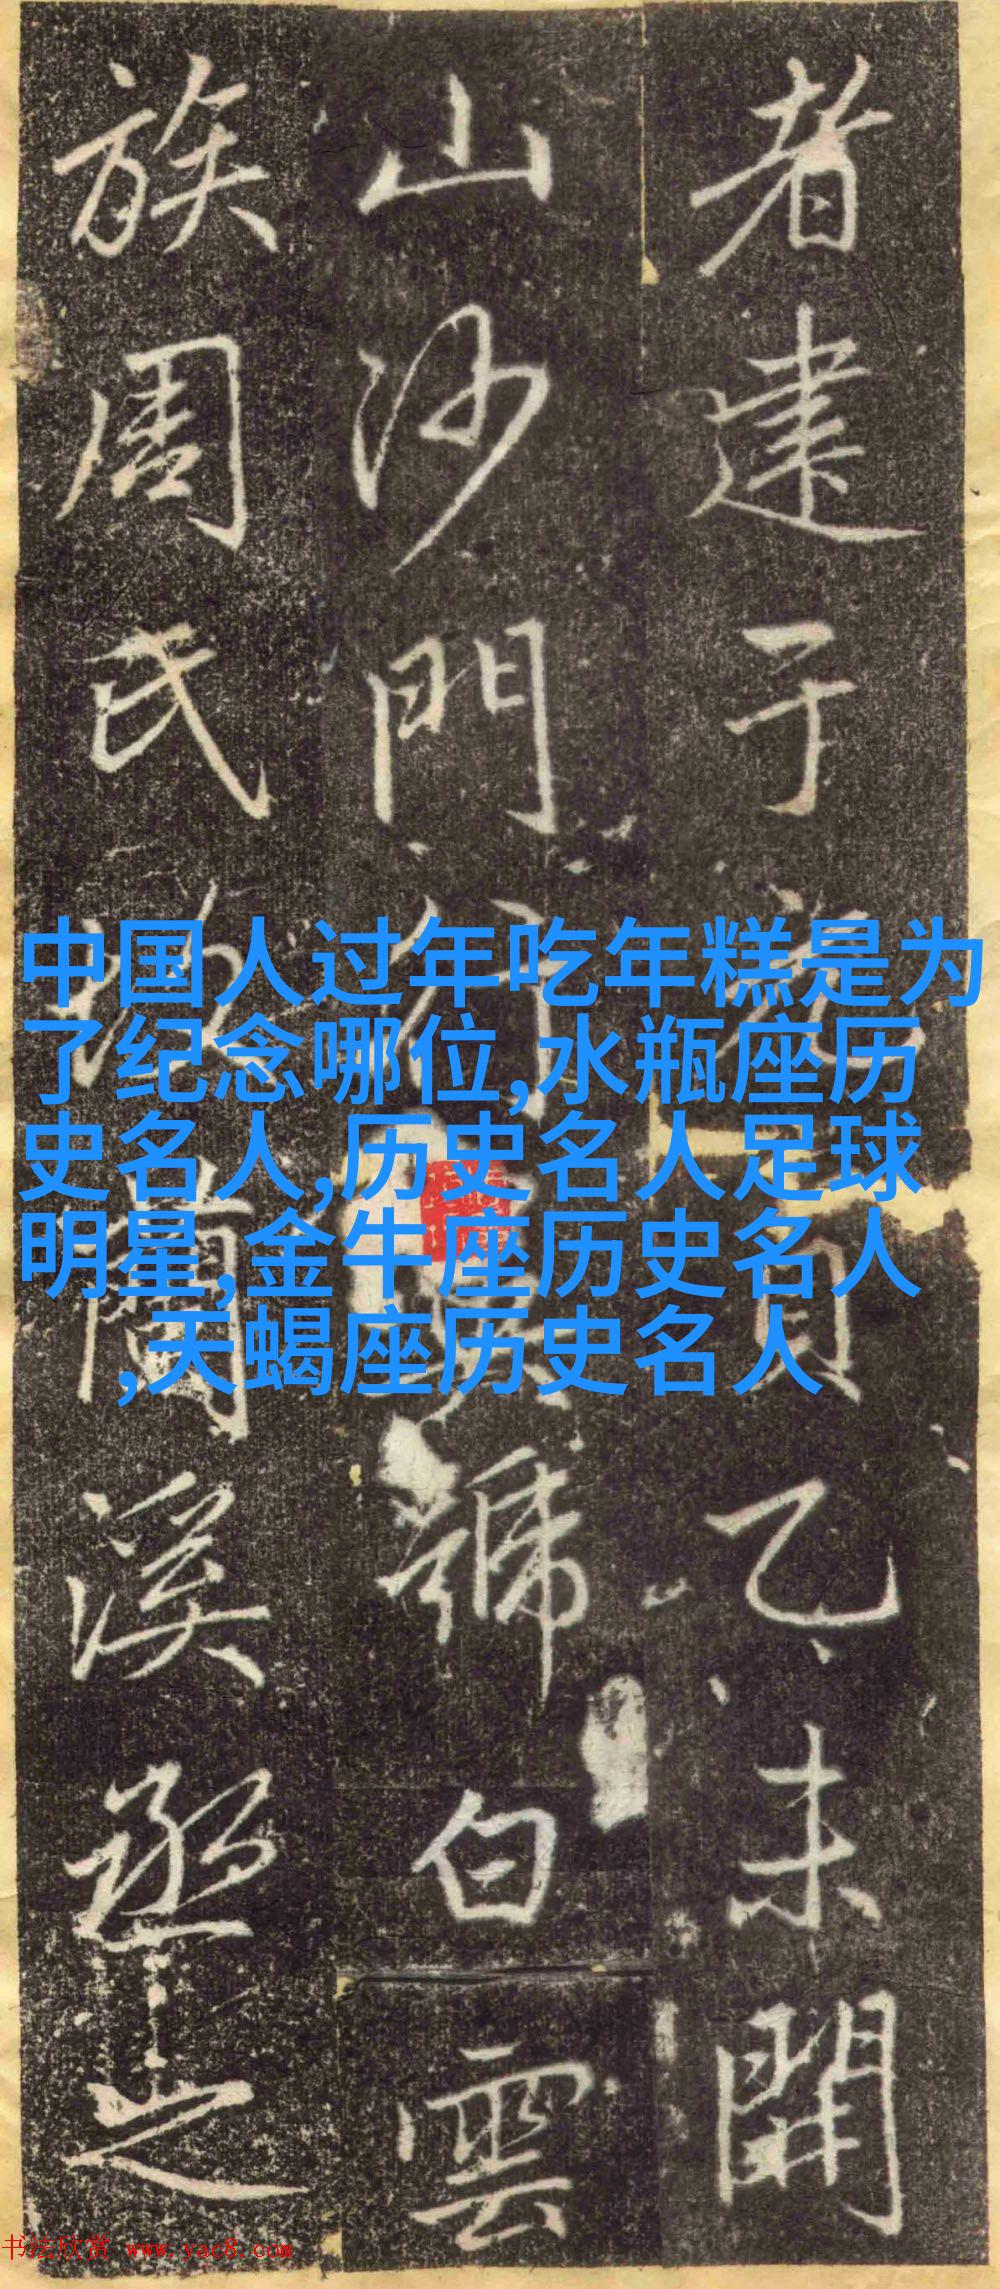 者建于元貞乙未開
山沙門行號白雲
族周氏蘭溪丞之
中国人过年吃年糕是为
了纪念哪位,水瓶座历
史名人,历史名人足球
明星,金牛座历史名人
,天蝎座历史名人
书法欣赏 www.yac8.com